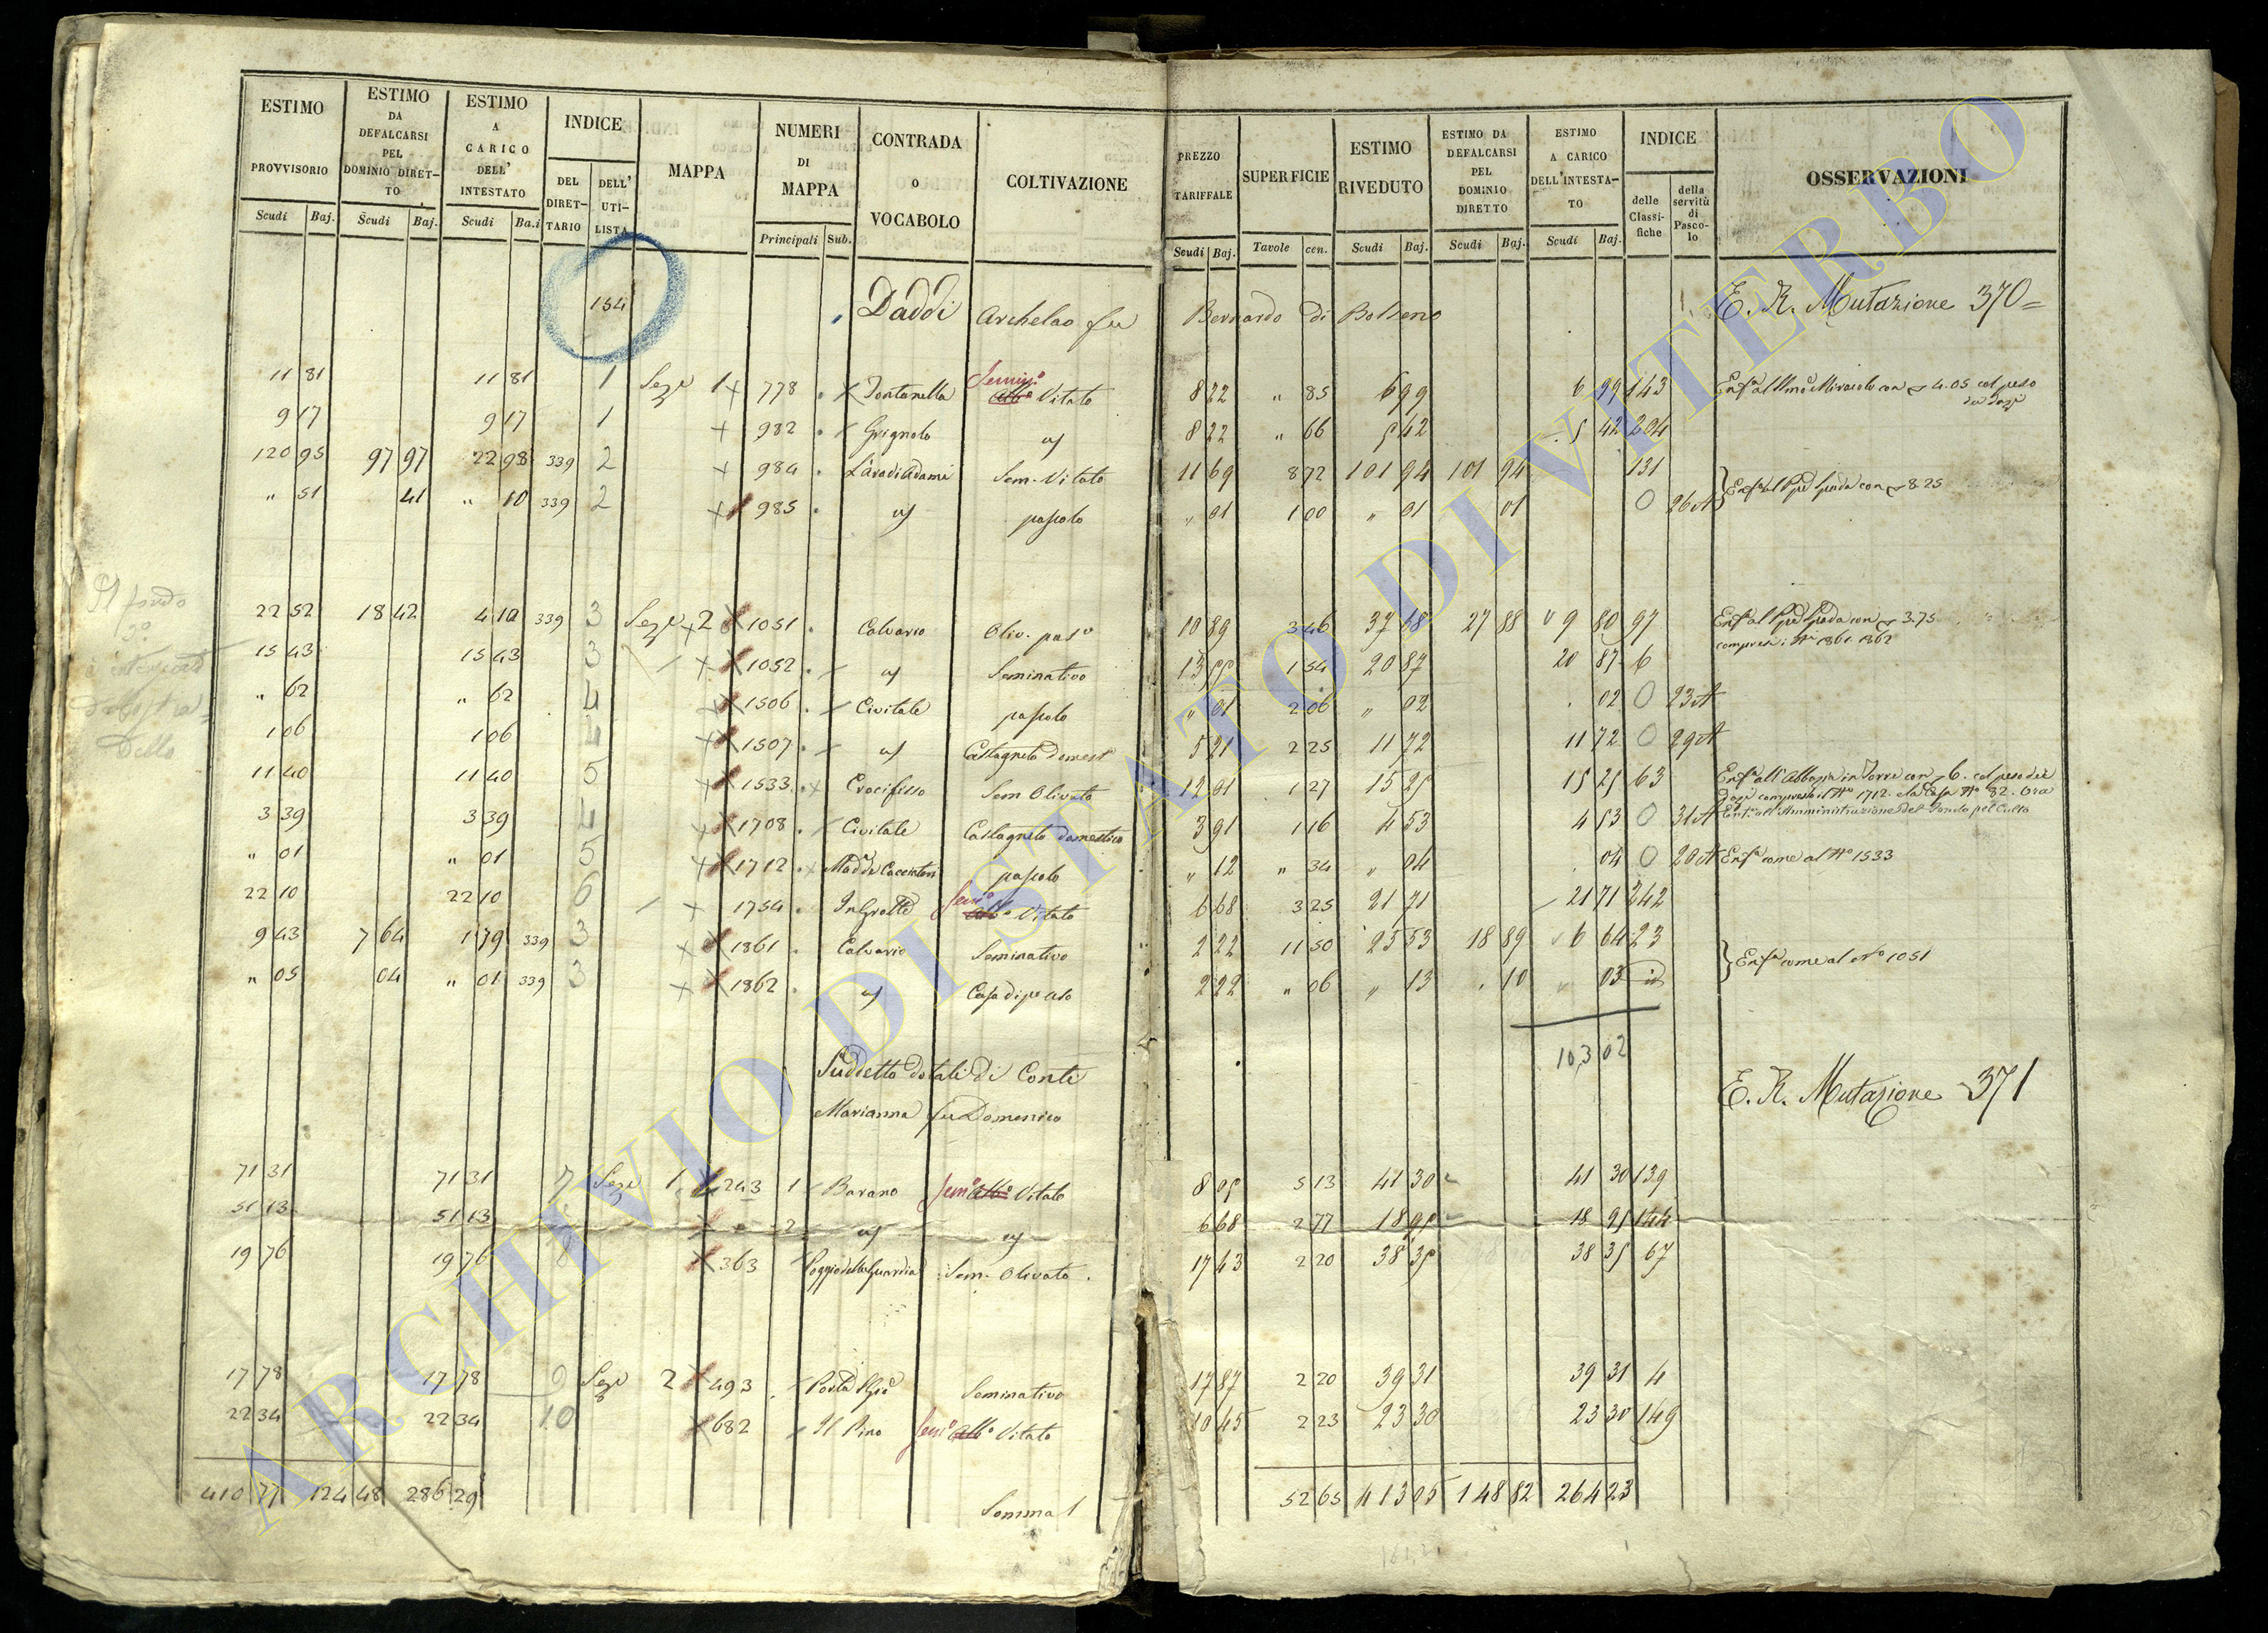 ESTIMO PROVVISORIO Scudi Baj.
ESTIMO DA DEFALCARSI PEL DOMINIO DIRETTO Scudi Baj.
ESTIMO A CARICO DELL' INTESTATO Scudi Ba.i
INDICE DEL DIRETTARIO DELL' UTILISTA
MAPPA
NUMERI DI MAPPA Principali Sub.
CONTRADA o VOCABOLO
COLTIVAZIONE
PREZZO TARIFFALE Scudi Baj.
SUPERFICIE Tavole cen.
ESTIMO RIVEDUTO Scudi Baj.
ESTIMO DA DEFALCARSI PEL DOMINIO DIRETTO Scudi Baj.
ESTIMO A CARICO DELL'INTESTATO Scudi Baj.
INDICE delle Classifiche della servitù di Pascolo
OSSERVAZIONI
154 Daddi Archelao fu Bernardo di Bolseno E. R. Mutazione 370
11 81 11 81 1 Seze 1 778 Fontanella Semin.o Vitato 8 22 " 85 6 99 6 99 143
9 17 9 17 1 982 Grignolo 8 22 " 66 5 42 5 42 204
120 95 97 97 22 98 339 2 984 Sem. Vitato 11 69 8 72 101 94 101 94 131
" 51 41 " 10 339 2 985 pascolo " 01 1 00 " 01 01 0 26 A
22 52 18 42 4 10 339 3 Seze 2 1051 Calvario Oliv. pas.o 10 89 3 46 37 68 27 88 9 80 97
compresi i N.i 1861. 1862
15 43 15 43 3 1052 Seminativo 13 55 1 54 20 87 20 87 6
" 62 " 62 4 1506 Civitale pascolo " 01 2 06 " 02 02 0 23 A
1 06 1 06 4 1507 Castagneto domest 5 21 2 25 11 72 11 72 0 29 A
11 40 11 40 5 1533 Crocifisso Sem Olivato 12 01 1 27 15 25 15 25 63
3 39 3 39 4 1708 Civitale Castagneto domestico 3 91 1 16 4 53 4 53 0 31 A
" 01 " 01 5 1712 pascolo " 12 " 34 " 04 04 0 20 A Enf.a come al N.o 1533
22 10 22 10 6 1754 Vitato 6 68 3 25 21 71 21 71 242
9 43 7 64 1 79 339 3 1861 Calvario Seminativo 2 22 11 50 25 53 18 89 6 64 23 Enf.a come al N.o 1051
" 05 04 " 01 339 3 1862 2 22 " 06 " 13 10 03
103 02
Suddetto dotali di Conti
Marianna fu Domenico E. R. Mutazione 371
71 31 71 31 7 Seze 1 243 1 Barano Sem.o Vitato 8 05 5 13 41 30 41 30 139
51 13 51 13 2 6 68 2 77 18 95 18 95 144
19 76 19 76 8 363 Poggio della Guardia Sem. Olivato 17 43 2 20 38 35 38 35 67
17 78 17 78 9 Seze 2 493 Seminativo 17 87 2 20 39 31 39 31 4
22 34 22 34 10 682 Il Piro Sem.o Vitato 10 45 2 23 23 30 23 30 149
410 77 124 48 286 29 Somma 52 65 413 05 148 82 264 23
ARCHIVIO DI STATO DI VITERBO